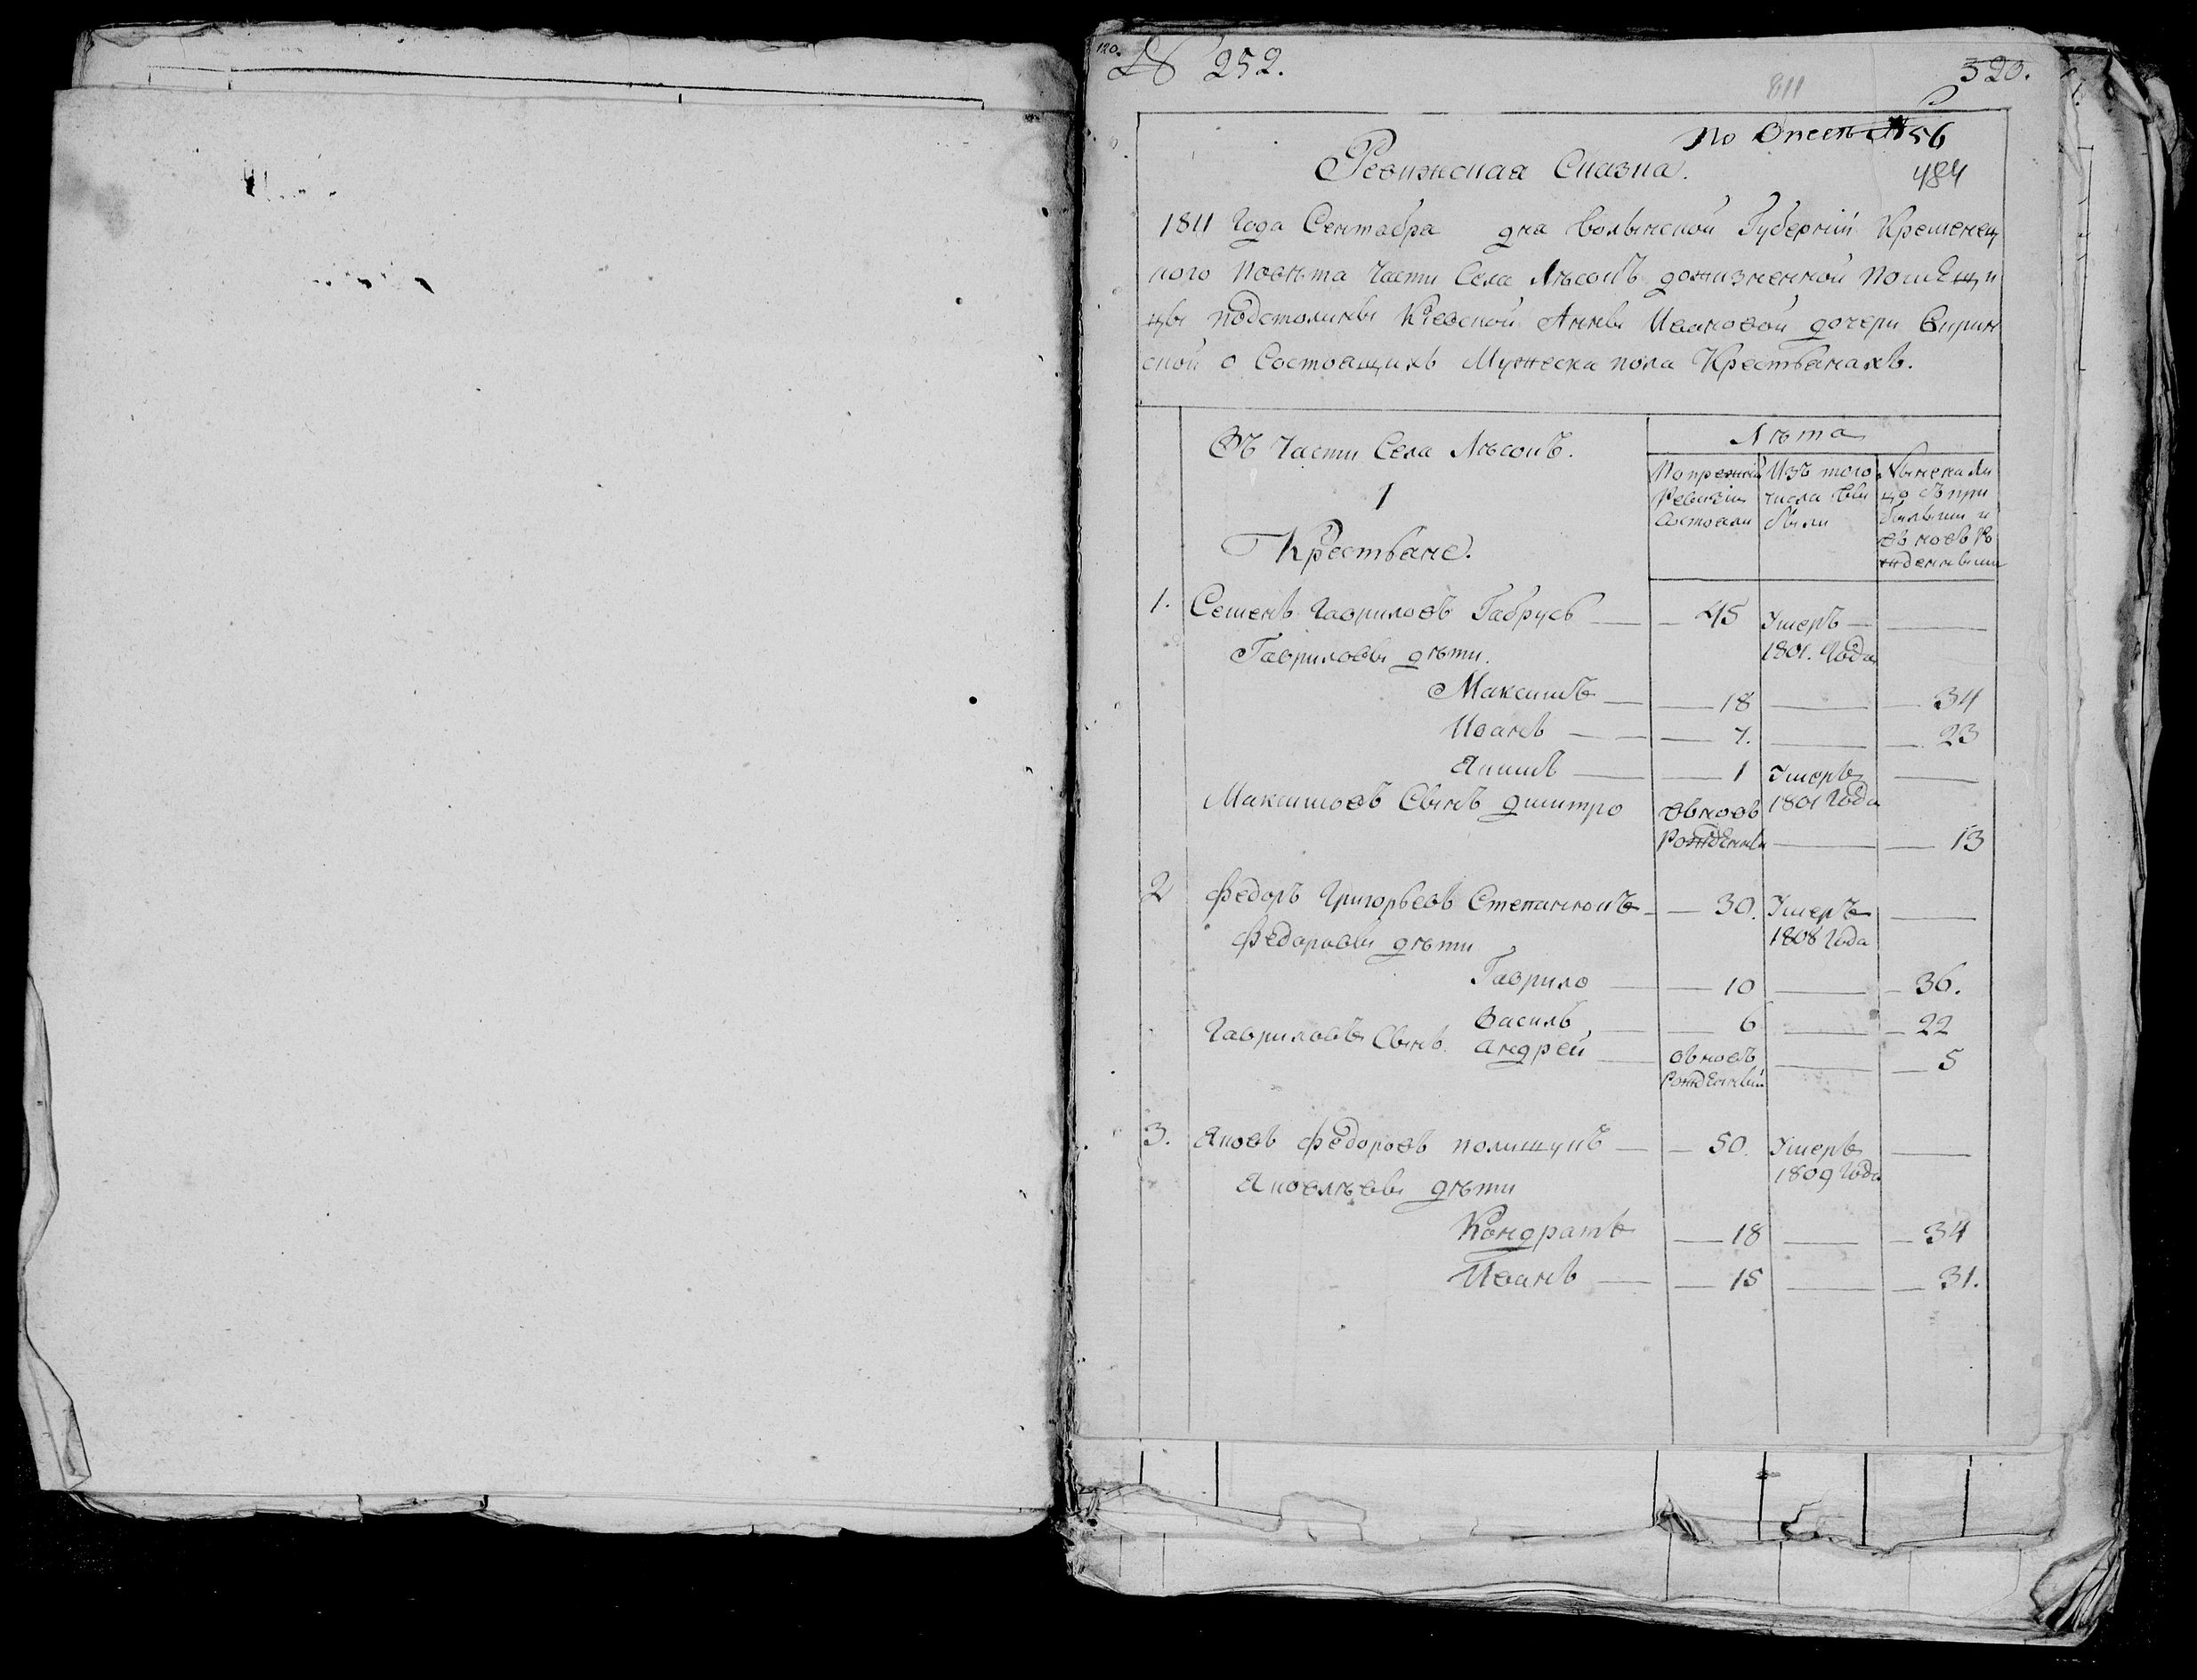 120.
№ 252.
320.
811
По Описи № 56
484
Ревижская Сказка.
1811 Года Сентабра дна Волынской Губерніи Кременец
кого Повѣта Части Села Лѣсокъ дожизненной помѣщи
цы подстолины Кіевской Анны Ивановой дочери
ской о Состоащихъ Мужеска пола Крестьанахъ.
Въ Части Села Лѣсокъ.
1
Крестьане.
Лѣта
По прежней
Ревизіи
Состоали
Изъ того
числа вы
были
Нынѣ на Ли
цо съ при
былыми и
въ новь Ро
жденными
1. Семенъ Гавриловъ Габрусь — 45 Умеръ —
1801. Года
Гавриловы дѣти.
Максимъ — 18 — 34
Иванъ — 7. — 23
Акимъ — 1 Умеръ —
1801 Года
Максимовъ Сынъ Димитро въ новь
Рожденны — 13
2 Федоръ Григорьевъ Степанюкъ — 30. Умеръ —
1808 Года
Федоровы дѣти
Гаврило — 10 — 36.
Василь — 6 — 22
Гавриловъ Сынъ. Андрей — въ новь
Рожденный — 5
3. Яковъ Федоровъ полищукъ — 50. Умеръ —
1809 Года
Яковлѣвы дѣти
Кондратъ — 18 — 34
Иванъ — 15 — 31.